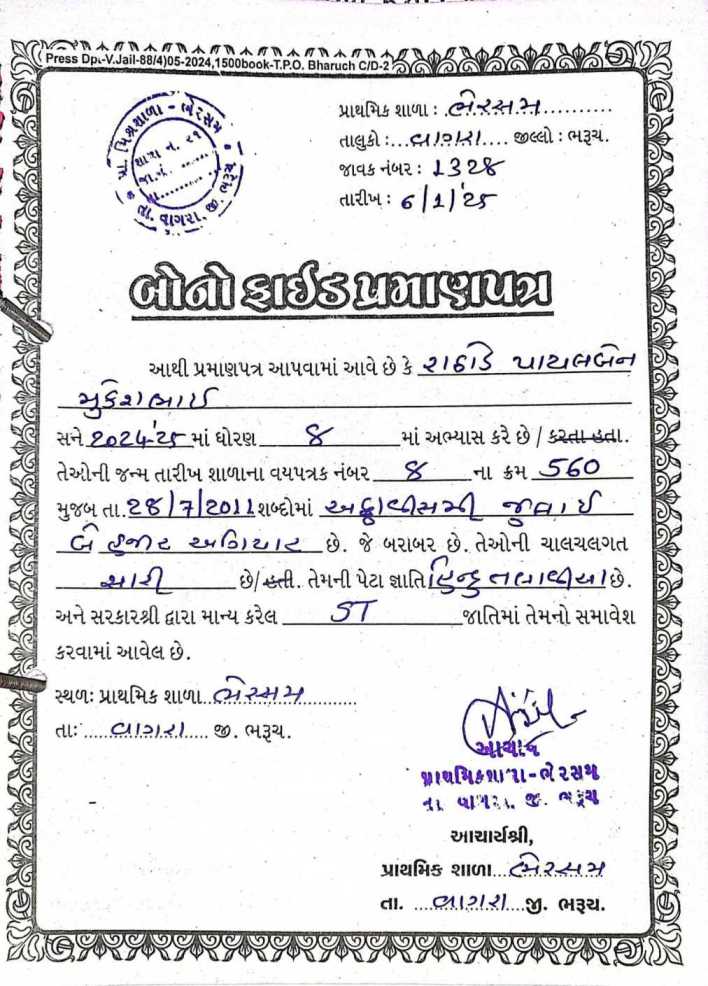 Press Dpt.-V.Jail-88/4)05-2024,1500book-T.P.O. Bharuch C/D-2
પ્રા. મિશ્રશાળા - ભેરસમ
શાળા નં. ૨૧
જા.નં.
તા. વાગરા, જી. ભરૂચ
પ્રાથમિક શાળા : ભેરસમ
તાલુકો : વાગરા જીલ્લો : ભરૂચ.
જાવક નંબર : 1328
તારીખ : 6/1/'25
બોનોફાઈડ પ્રમાણપત્ર
આથી પ્રમાણપત્ર આપવામાં આવે છે કે રાઠોડ પાયલબેન
મુકેશભાઈ
સને 2024-'25 માં ધોરણ 8 માં અભ્યાસ કરે છે / કરતા હતા.
તેઓની જન્મ તારીખ શાળાના વયપત્રક નંબર 8 ના ક્રમ 560
મુજબ તા. 28/7/2011 શબ્દોમાં અઠ્ઠાવીસમી જુલાઈ
બે હજાર અગિયાર છે. જે બરાબર છે. તેઓની ચાલચલગત
સારી છે/હતી. તેમની પેટા જ્ઞાતિ હિન્દુ તલાવીયા છે.
અને સરકારશ્રી દ્વારા માન્ય કરેલ ST જાતિમાં તેમનો સમાવેશ
કરવામાં આવેલ છે.
સ્થળ: પ્રાથમિક શાળા ભેરસમ
તા: વાગરા જી. ભરૂચ.
આચાર્ય
પ્રાથમિકશાળા-ભેરસમ
તા. વાગરા, જી. ભરૂચ
આચાર્યશ્રી,
પ્રાથમિક શાળા ભેરસમ
તા. વાગરા જી. ભરૂચ.